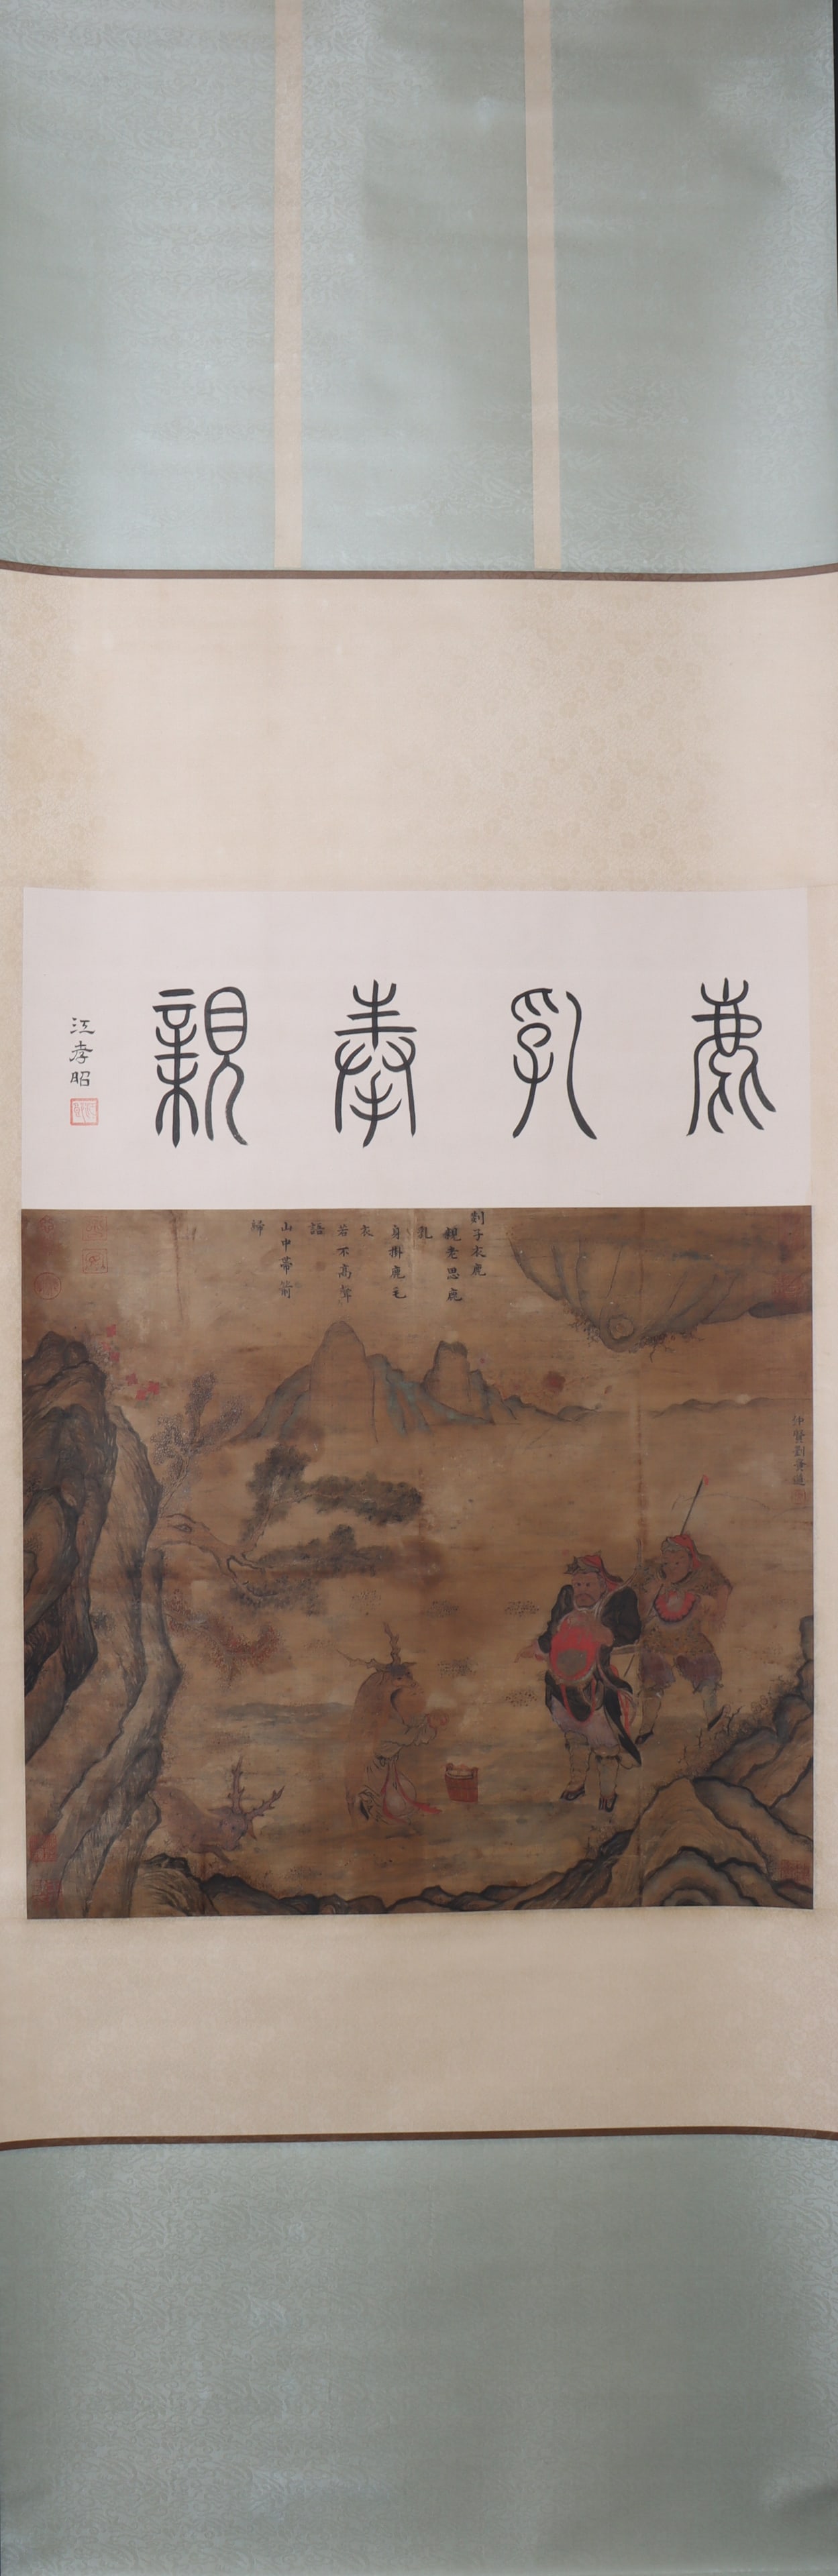 鹿乳奉親
江孝昭
剡子衣鹿
親老思鹿
乳
身掛鹿毛
衣
若不高聲
語
山中帶箭
歸
仲賢劉